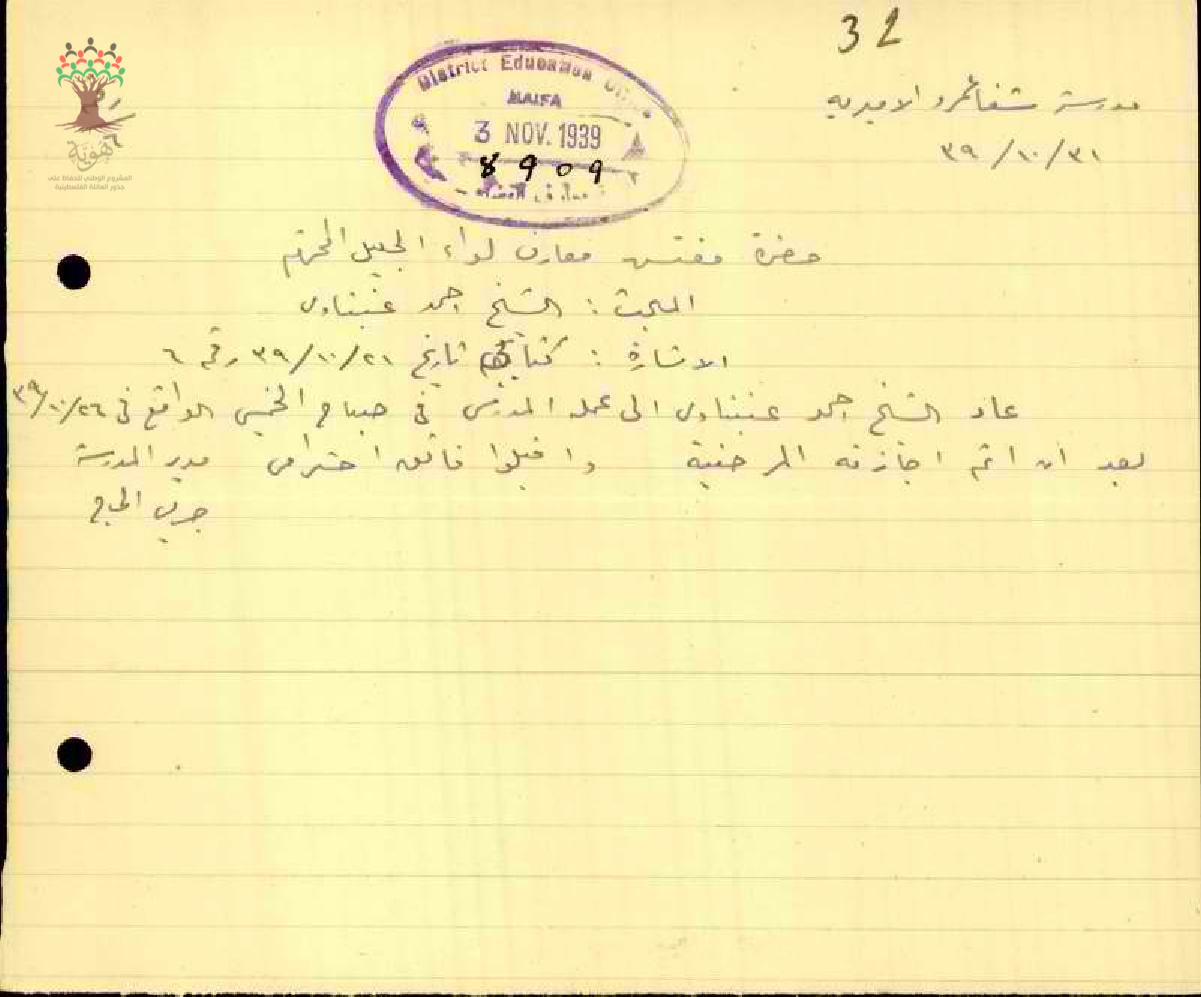 32
مدرسة شفاعمرو الاميرية
٣٩/١٠/٣١
District Education
HAIFA
3 NOV. 1939
8909
هوية
المشروع الوطني للحفاظ على
جذور العائلة الفلسطينية
حضرة مفتش معارف لواء الجليل المحترم
المبحث : الشيخ احمد
الاشارة : تاريخ ٣٩/١٠/٢١ رقم ٦
عاد الشيخ احمد الى عمله المدرسي في صباح الخميس الواقع في ٣٩/١٠/٢٦
بعد ان اتم اجازته المرضية واقبلوا فائق احترامي مدير المدرسة